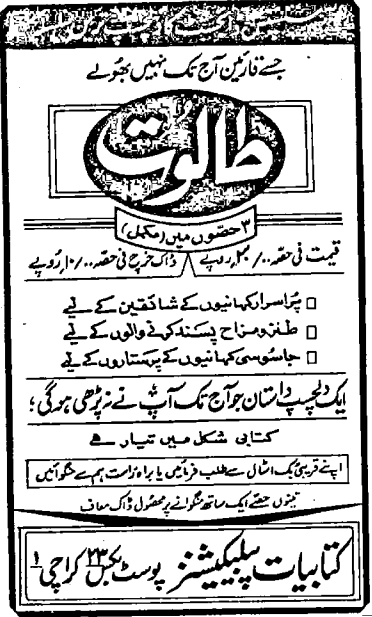 سسپنس ڈائجسٹ کی دلچسپ ترین
جسے قارئین آج تک نہیں بھولے
طالوت
۳ حصّوں میں (مکمل)
قیمت فی حصّہ /۲۰ روپے ڈاک خرچ فی حصّہ /۱۰ روپے
□ پُراسرار کہانیوں کے شائقین کے لیے
□ طنز و مزاح پسند کرنے والوں کے لیے
□ جاسوسی کہانیوں کے پرستاروں کے لیے
ایک دلچسپ داستان جو آج تک آپ نے نہ پڑھی ہو گی؛
کتابی شکل میں تیار ہے
اپنے قریبی بک اسٹال سے طلب فرمائیں یا براہ راست ہم سے منگوائیں
تینوں حصّے ایک ساتھ منگوانے پر محصول ڈاک معاف
کتابیات پبلیکیشنز پوسٹ بکس ۲۳ کراچی ۱